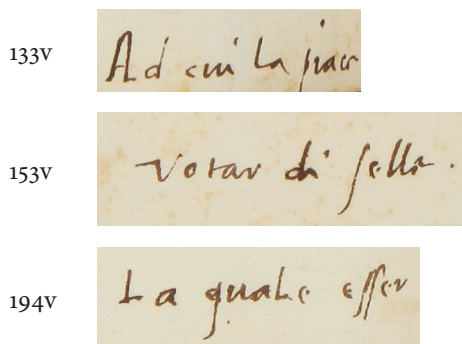 133v
Ad cui la piace
153v
Votar di selle.
194v
La quale esser